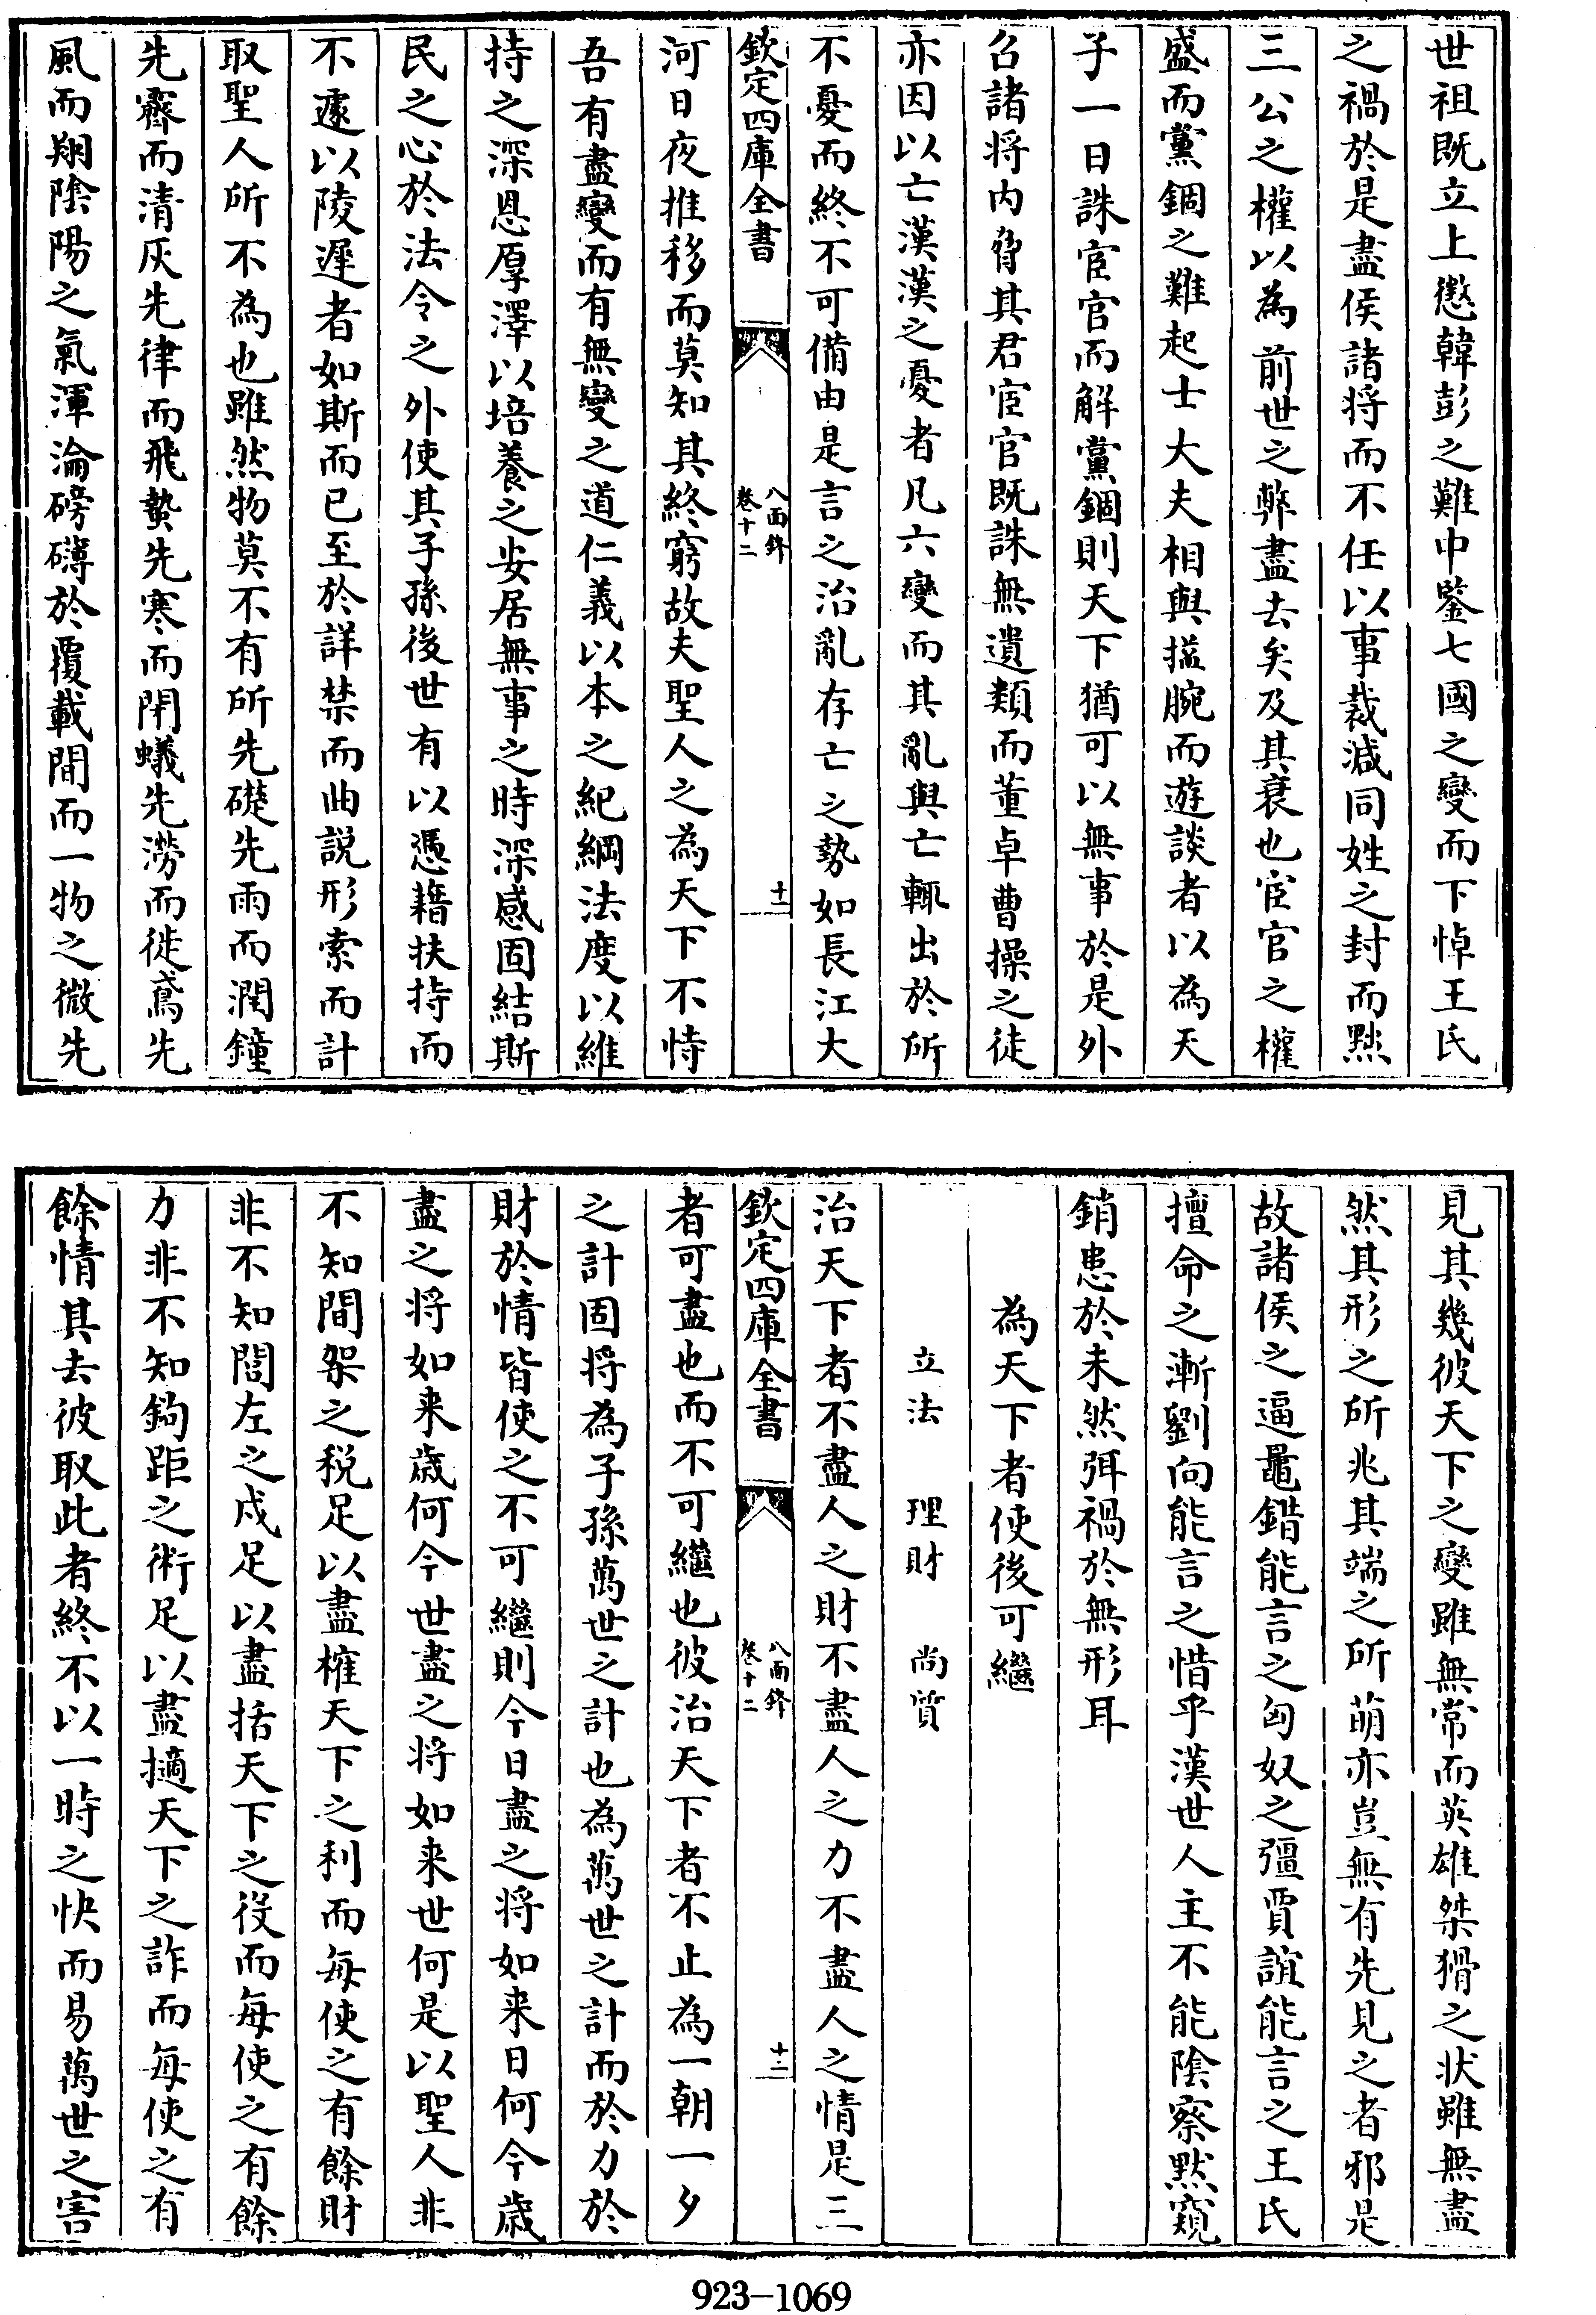 世祖既立上懲韓彭之難中鑒七國之變而下悼王氏
之禍於是盡侯諸将而不任以事裁減同姓之封而黜
三公之權以為前世之弊盡去矣及其衰也宦官之權
盛而黨錮之難起士大夫相與搤腕而遊談者以為天
子一日誅宦官而解黨錮則天下猶可以無事於是外
召諸将内脅其君宦官既誅無遺類而董卓曹操之徒
亦因以亡漢漢之憂者凡六變而其亂與亡輒出於所
不憂而終不可備由是言之治亂存亡之勢如長江大
欽定四庫全書
八面鋒
卷十二
十一
河日夜推移而莫知其終窮故夫聖人之為天下不恃
吾有盡變而有無變之道仁義以本之紀綱法度以維
持之深恩厚澤以培養之安居無事之時深感固結斯
民之心於法令之外使其子孫後世有以憑藉扶持而
不遽以陵遲者如斯而已至於詳禁而曲説形索而計
取聖人所不為也雖然物莫不有所先礎先雨而潤鐘
先霽而清灰先律而飛蟄先寒而閉蟻先澇而徙鳶先
風而翔陰陽之氣渾淪磅礴於覆載間而一物之微先
見其幾彼天下之變雖無常而英雄桀猾之状雖無盡
然其形之所兆其端之所萌亦豈無有先見之者邪是
故諸侯之逼鼂錯能言之匈奴之彊賈誼能言之王氏
擅命之漸劉向能言之惜乎漢世人主不能陰察黙窺
銷患於未然弭禍於無形耳
為天下者使後可繼
立法　理財　尚質
治天下者不盡人之財不盡人之力不盡人之情是三
欽定四庫全書
八面鋒
卷十二
十二
者可盡也而不可繼也彼治天下者不止為一朝一夕
之計固将為子孫萬世之計也為萬世之計而於力於
財於情皆使之不可繼則今日盡之将如来日何今歳
盡之将如来歳何今世盡之将如来世何是以聖人非
不知間架之税足以盡榷天下之利而每使之有餘財
非不知閭左之戍足以盡括天下之役而每使之有餘
力非不知鉤距之術足以盡擿天下之詐而每使之有
餘情其去彼取此者終不以一時之快而易萬世之害
923-1069